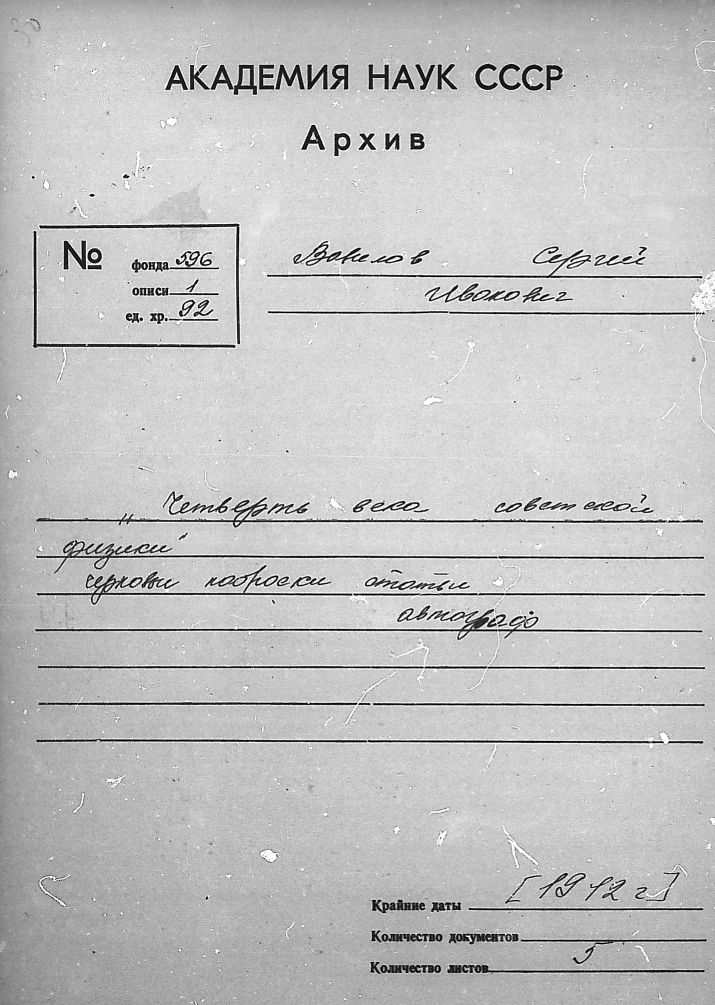 30
АКАДЕМИЯ НАУК СССР
Архив
№
фонда 596
описи 1
ед. хр. 92
Вавилов Сергей
Иванович
„Четверть века советской
физики"
черновые наброски статьи
автограф
Крайние даты [1942 г]
Количество документов
Количество листов 5